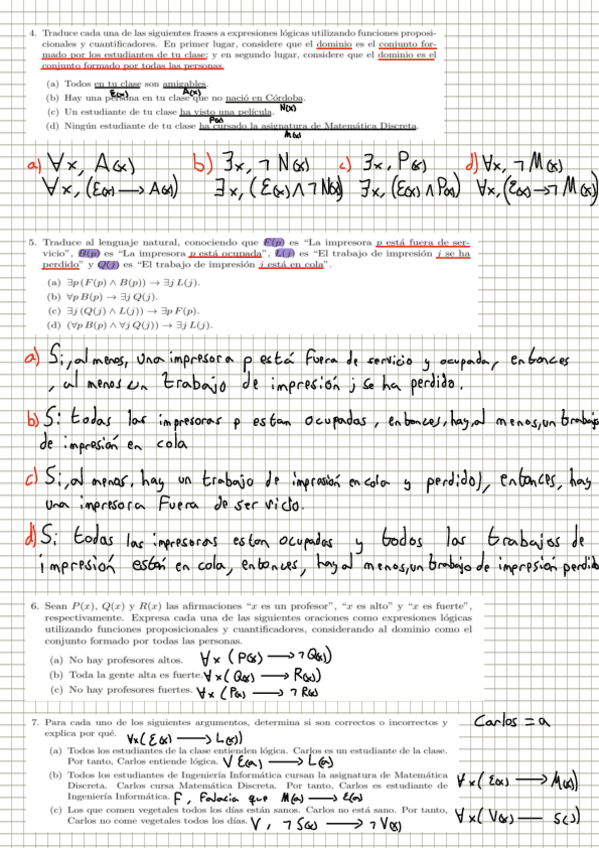 4. Traduce cada una de las siguientes frases a expresiones lógicas utilizando funciones proposi-
cionales y cuantificadores. En primer lugar, considere que el dominio es el conjunto for-
mado por los estudiantes de tu clase; y en segundo lugar, considere que el dominio es el
conjunto formado por todas las personas.
(a) Todos en tu clase son amigables.
E(x) A(x)
(b) Hay una persona en tu clase que no nació en Córdoba.
N(x)
(c) Un estudiante de tu clase ha visto una película.
P(x)
(d) Ningún estudiante de tu clase ha cursado la asignatura de Matemática Discreta.
M(x)
a) ∀x, A(x) b) ∃x, ¬N(x) c) ∃x, P(x) d) ∀x, ¬M(x)
∀x, (E(x) → A(x)) ∃x, (E(x) ∧ ¬N(x)) ∃x, (E(x) ∧ P(x)) ∀x, (E(x) → ¬M(x))
5. Traduce al lenguaje natural, conociendo que F(p) es "La impresora p está fuera de ser-
vicio", B(p) es "La impresora p está ocupada", L(j) es "El trabajo de impresión j se ha
perdido" y Q(j) es "El trabajo de impresión j está en cola".
(a) ∃p (F(p) ∧ B(p)) → ∃j L(j).
(b) ∀p B(p) → ∃j Q(j).
(c) ∃j (Q(j) ∧ L(j)) → ∃p F(p).
(d) (∀p B(p) ∧ ∀j Q(j)) → ∃j L(j).
a) Si, al menos, una impresora p está fuera de servicio y ocupada, entonces
, al menos un trabajo de impresión j se ha perdido.
b) Si todas las impresoras p estan ocupadas, entonces, hay, al menos, un trabajo
de impresión en cola
c) Si, al menos, hay un trabajo de impresión en cola y perdido), entonces, hay
una impresora fuera de servicio.
d) Si todas las impresoras estan ocupadas y todos los trabajos de
impresión están en cola, entonces, hay al menos, un trabajo de impresión perdido
6. Sean P(x), Q(x) y R(x) las afirmaciones "x es un profesor", "x es alto" y "x es fuerte",
respectivamente. Expresa cada una de las siguientes oraciones como expresiones lógicas
utilizando funciones proposicionales y cuantificadores, considerando al dominio como el
conjunto formado por todas las personas.
(a) No hay profesores altos. ∀x (P(x) → ¬Q(x))
(b) Toda la gente alta es fuerte. ∀x (Q(x) → R(x))
(c) No hay profesores fuertes. ∀x (P(x) → ¬R(x))
7. Para cada uno de los siguientes argumentos, determina si son correctos o incorrectos y
explica por qué. ∀x (E(x) → L(x))
Carlos = a
(a) Todos los estudiantes de la clase entienden lógica. Carlos es un estudiante de la clase.
Por tanto, Carlos entiende lógica. V E(a) → L(a)
(b) Todos los estudiantes de Ingeniería Informática cursan la asignatura de Matemática
Discreta. Carlos cursa Matemática Discreta. Por tanto, Carlos es estudiante de
Ingeniería Informática. F, Falacia que M(a) → E(a)
∀x (E(x) → M(x))
(c) Los que comen vegetales todos los días están sanos. Carlos no está sano. Por tanto,
Carlos no come vegetales todos los días. V, ¬S(x) → ¬V(x)
∀x (V(x) — S(x)